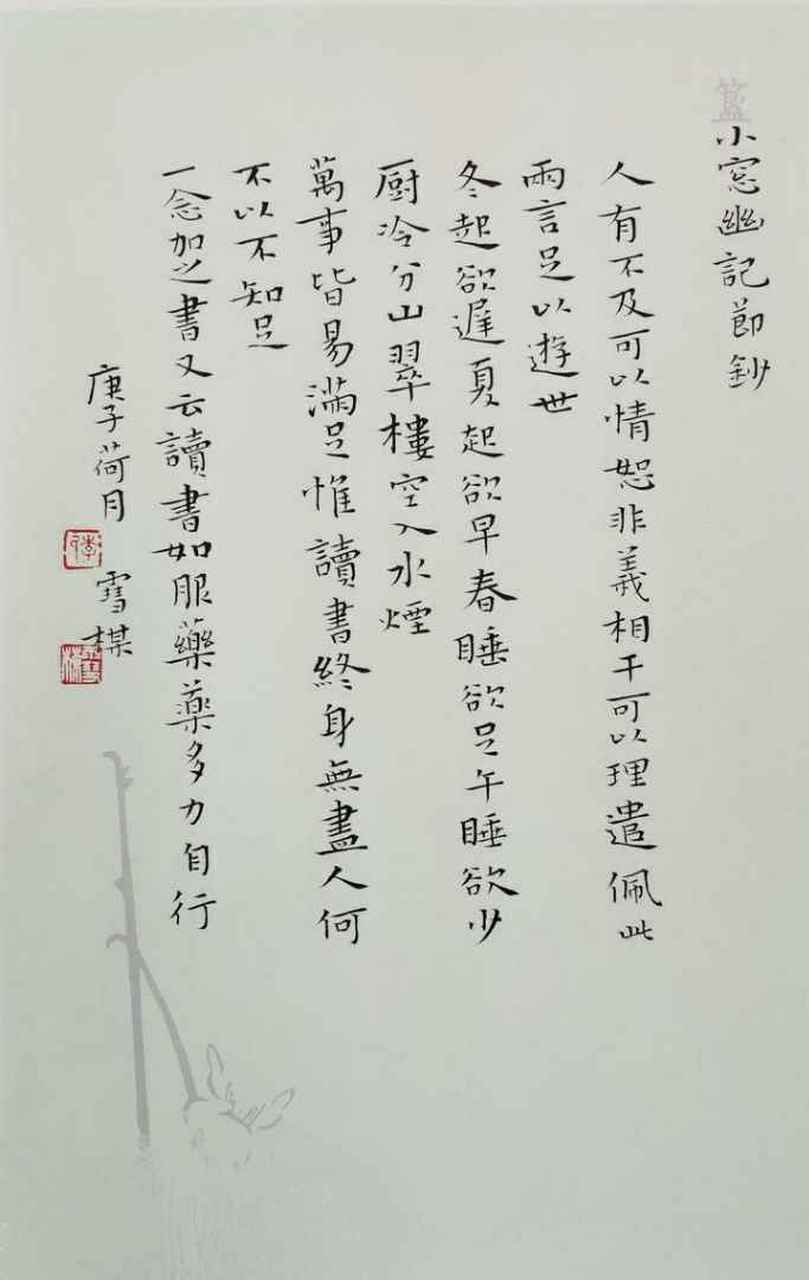 小窓幽記節鈔
人有不及可以情恕非義相干可以理遣佩此
兩言足以遊世
冬起欲遲夏起欲早春睡欲足午睡欲少
厨冷分山翠樓空入水煙
萬事皆易滿足惟讀書終身無盡人何
不以不知足
一念加之書又云讀書如服藥藥多力自行
庚子荷月
雪楳